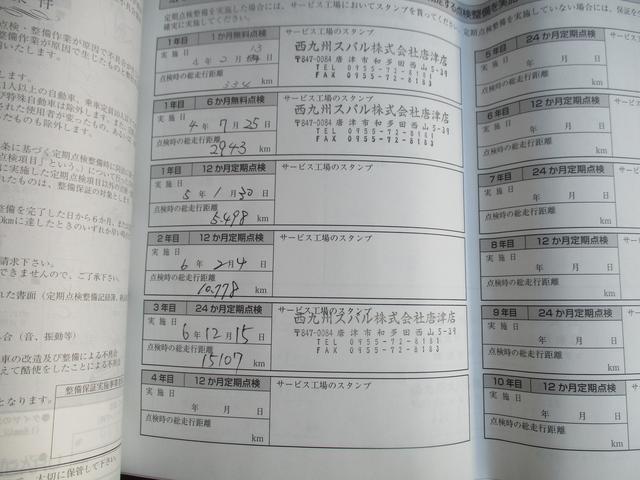 定期点検を実施した場合には、サービス工場においてスタンプを貰ってください。
1年目 1か月無料点検 サービス工場のスタンプ
実施日 4年2月13日
点検時の総走行距離
334 km
西九州スバル株式会社唐津店
〒847-0084 唐津市和多田西山5-39
TEL 0955-72-8181
FAX 0955-72-8183
1年目 6か月無料点検 サービス工場のスタンプ
実施日 4年7月25日
点検時の総走行距離
2943 km
西九州スバル株式会社唐津店
〒847-0084 唐津市和多田西山5-39
TEL 0955-72-8181
FAX 0955-72-8183
1年目 12か月定期点検 サービス工場のスタンプ
実施日 5年1月30日
点検時の総走行距離
5.498 km
2年目 12か月定期点検 サービス工場のスタンプ
実施日 6年2月4日
点検時の総走行距離
10.778 km
3年目 24か月定期点検 サービス工場のスタンプ
実施日 6年12月15日
点検時の総走行距離
15107 km
西九州スバル株式会社唐津店
〒847-0084 唐津市和多田西山5-39
TEL 0955-72-8181
FAX 0955-72-8183
4年目 12か月定期点検 サービス工場のスタンプ
実施日 年 月 日
点検時の総走行距離
km
5年目
実施日 年 月 日
点検時の総走行距離
6年目 12か月定期点検
実施日 年 月 日
点検時の総走行距離
km
7年目 24か月定期点検
実施日 年 月 日
点検時の総走行距離
km
8年目 12か月定期点検
実施日 年 月 日
点検時の総走行距離
km
9年目 24か月定期点検
実施日 年 月 日
点検時の総走行距離
km
10年目 12か月定期点検
実施日 年 月 日
点検時の総走行距離
km
請求下さい。
できませんので、ご了承下さい。
合（音、振動等）
車の改造及び整備による不具合
えて酷使をしたことによる不具合
となります。
大切に保管して下さい。